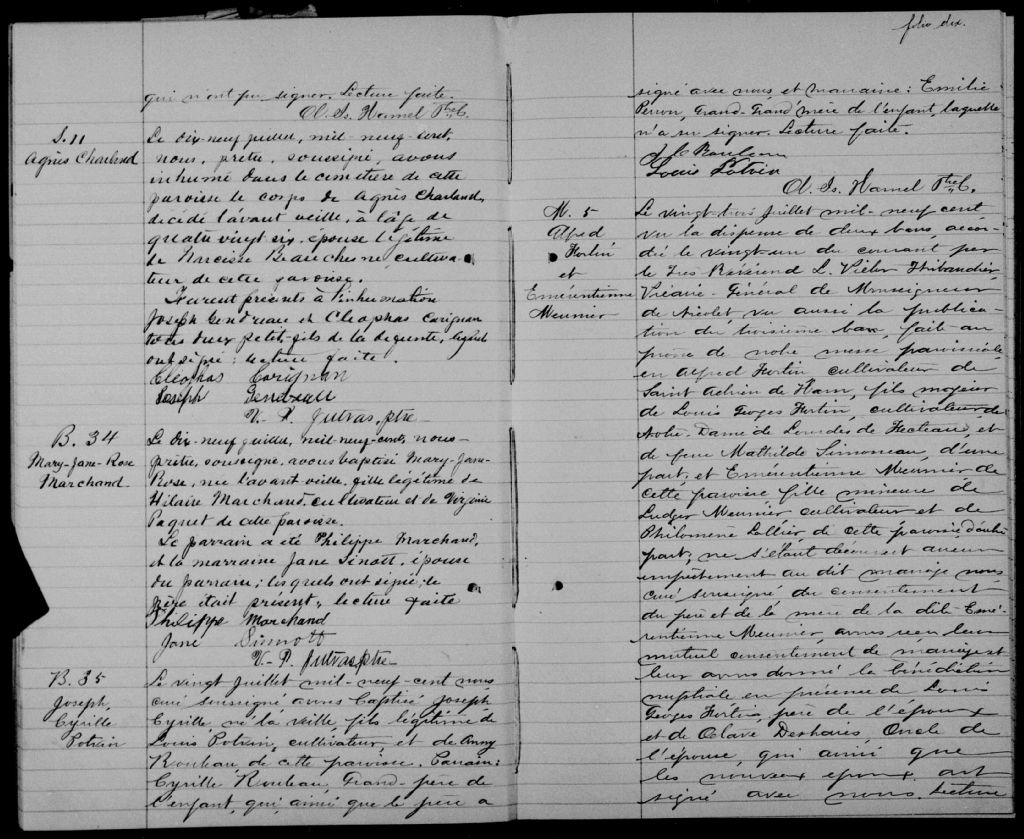 qui n'ont pu signer. Lecture faite.
Ol. Is. Hamel Ptre C.
S. 11
Agnès Charland
Le dix-neuf juillet, mil-neuf-cent,
nous, prêtre, soussigné, avons
inhumé dans le cimetière de cette
paroisse le corps de Agnès Charland,
décédé l'avant veille, à l'âge de
quatre vingt six, épouse légitime
de Narcisse Beauchesne, cultiva-
teur de cette paroisse.
Furent présents à l'inhumation
Joseph Gendreau et Cléophas Carignan
tous deux petit-fils de la défunte, lesquels
ont signé; lecture faite.
Cleophas Carignan
Joseph Gendreau
V.-P. Jutras, ptre
B. 34
Mary-Jane-Rose
Marchand
Le dix-neuf juillet, mil-neuf-cent, nous
prêtre, soussigné, avons baptisé Mary-Jane-
Rose, née l'avant veille, fille légitime de
Hilaire Marchand, cultivateur et de Virginie
Paquet de cette paroisse.
Le parrain a été Philippe Marchand,
et la marraine Jane Sinott, épouse
du parrain; lesquels ont signé; le
père était présent, lecture faite
Philippe Marchand
Jane Sinnott
V.-P. Jutras, ptre
B. 35
Joseph,
Cyrille
Potvin
Le vingt Juillet mil-neuf-cent nous
curé soussigné avons baptisé Joseph
Cyrille né la veille fils légitime de
Louis Potvin, cultivateur, et de Anny
Rouleau de cette paroisse. Parrain:
Cyrille Rouleau, Grand-père de
l'enfant, qui, ainsi que le père a
folio dix.
signé avec nous et marraine: Emilie
Perron, Grand, Grand'mère de l'enfant, laquelle
n'a su signer. Lecture faite.
Rouleau
Louis Potvin
Ol. Is. Hamel Ptre C.
M. 5
Alfred
Fortin
et
Emérentienne
Meunier
Le vingt-trois Juillet mil-neuf cent
vu la dispense de deux bans accor-
dée le vingt-un du courant par
le Très Révérend L. Victor Thibaudier
Vicaire-Général de Monseigneur
de Nicolet, vu aussi la publica-
tion du troisième ban, fait au
prône de notre messe paroissiale
en Alfred Fortin cultivateur de
Saint Adrien de Ham, fils majeur
de Louis Georges Fortin, cultivateur de
Notre-Dame de Lourdes de Hecteau, et
de feue Mathilde Simoneau, d'une
part; et Emérentienne Meunier de
cette paroisse fille mineure de
Ludger Meunier cultivateur et de
Philomène Cellier, de cette paroisse, d'autre
part; ne s'étant découvert aucun
empêchement au dit mariage nous
curé soussigné du consentement
du père et de la mère de la dite Emé-
rentienne Meunier, avons reçu leur
mutuel consentement de mariage et
leur avons donné la bénédiction
nuptiale en présence de Louis
Georges Fortin, père de l'époux
et de Olave Deshaies, Oncle de
l'épouse, qui ainsi que
les nouveaux époux ont
signé avec nous. Lecture